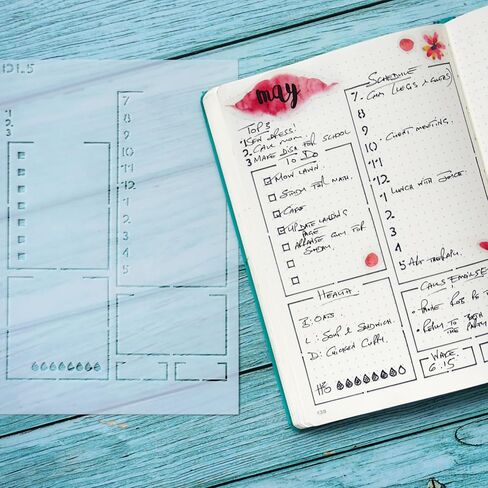 DI.5
1
2
3
7
8
9
10
11
12
1
2
3
4
5
may
TOP 3
1 SEW DRESS!
2. CALL MOM.
3 MAKE DISH FOR SCHOOL
TO DO
MOW LAWN.
STUDY FOR MATH.
CAKE
UPDATE
PAGE
ARRANGE FOR
SUNDAY.
HEALTH
B: OATS
L: SOUP & SANDWICH.
D: CHICKEN CURRY.
H2O
138
SCHEDULE
7. GYM (LEGS & )
8
9
10. CLIENT MEETING.
11
12.
1 LUNCH WITH
2.
3
4
5 ART THERAPY.
CALLS EMAILS E
RETURN TO
THE PARTY
WAKE.
6:15